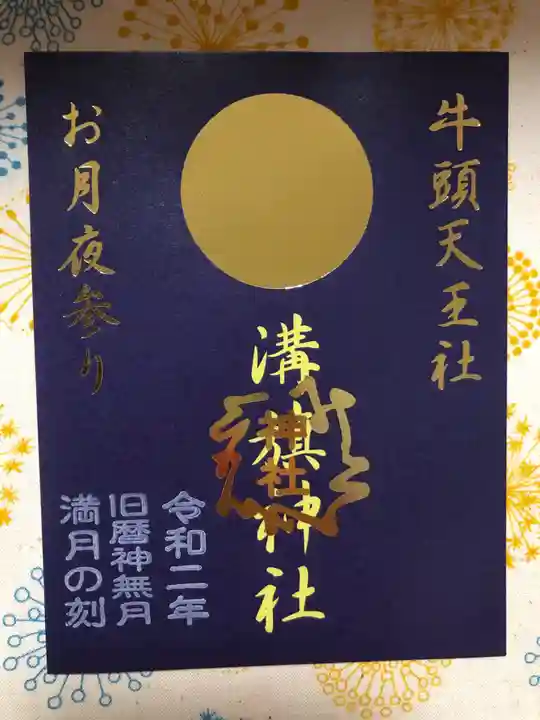 牛頭天王社
溝旗神社
神社
お月夜参り
令和二年
旧暦神無月
満月の刻